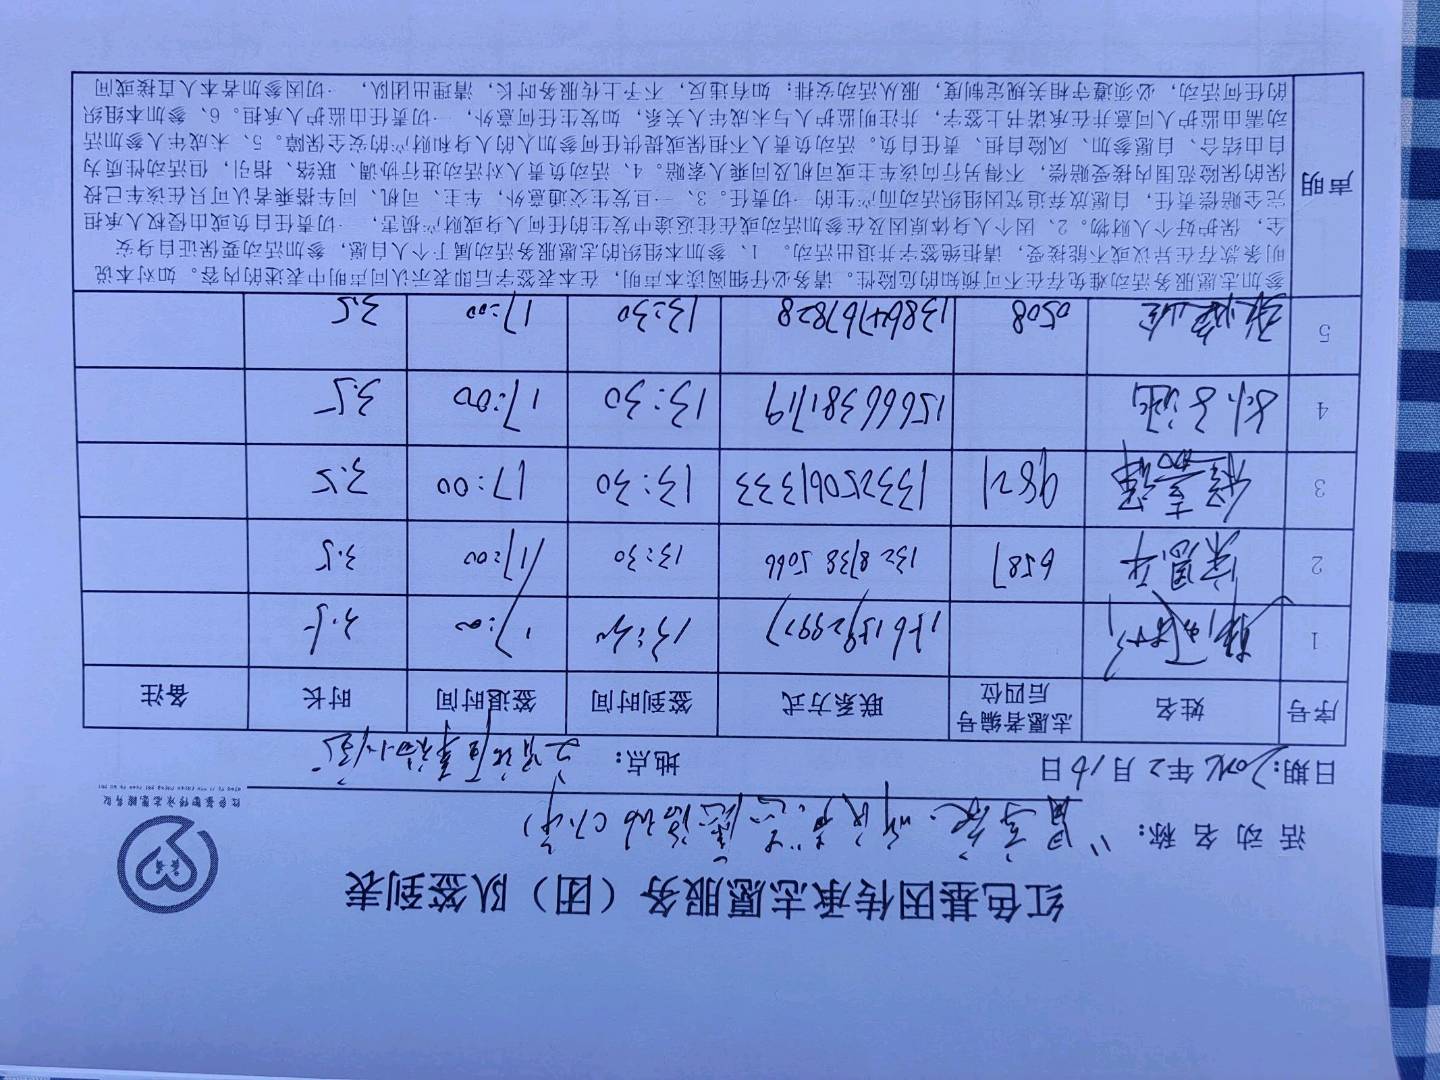 红色基因传承志愿服务（团）队签到表
活动名称：
红色基因传承志愿服务队
日期: 年2月16日 地点：
序号 姓名 志愿者编号后四位 联系方式 签到时间 签退时间 时长 备注
1 17:00 3.5
2 6587 132 8738 5066 13:30 17:00 3.5
3 9821 13325061333 13:30 17:00 3.5
4 15666381719 13:30 17:00 3.5
5 0508 13864767828 13:30 17:00 3.5
声明
参加志愿服务活动难免存在不可预知的危险性。请务必仔细阅读本声明，在本表签字后即表示认可声明中表述的内容。如对本说
明条款存在异议或不能接受，请拒绝签字并退出活动。 1、参加本组织的志愿服务活动属于个人自愿，参加活动要保证自身安
全，保护好个人财物。2、因个人身体原因及在参加活动或往返途中发生的任何人身或财产损害，一切责任自负或由侵权人承担
完全赔偿责任，自愿放弃追究因组织活动而产生的一切责任。3、一旦发生交通意外，车主、司机、同车搭乘者认可只在该车已投
保的保险范围内接受赔偿，不得另行向该车主或司机及同乘人索赔。4、活动负责人对活动进行协调、联络、指引，但活动性质为
自由结合、自愿参加、风险自担、责任自负。活动负责人不担保或提供任何参加人的人身和财产的安全保障。5、未成年人参加活
动需由监护人同意并在承诺书上签字，并注明监护人与未成年人关系，如发生任何意外，一切责任由监护人承担。6、参加本组织
的任何活动，必须遵守相关规定制度，服从活动安排；如有违反，不予上传服务时长，清理出团队，一切因参加者本人直接或间